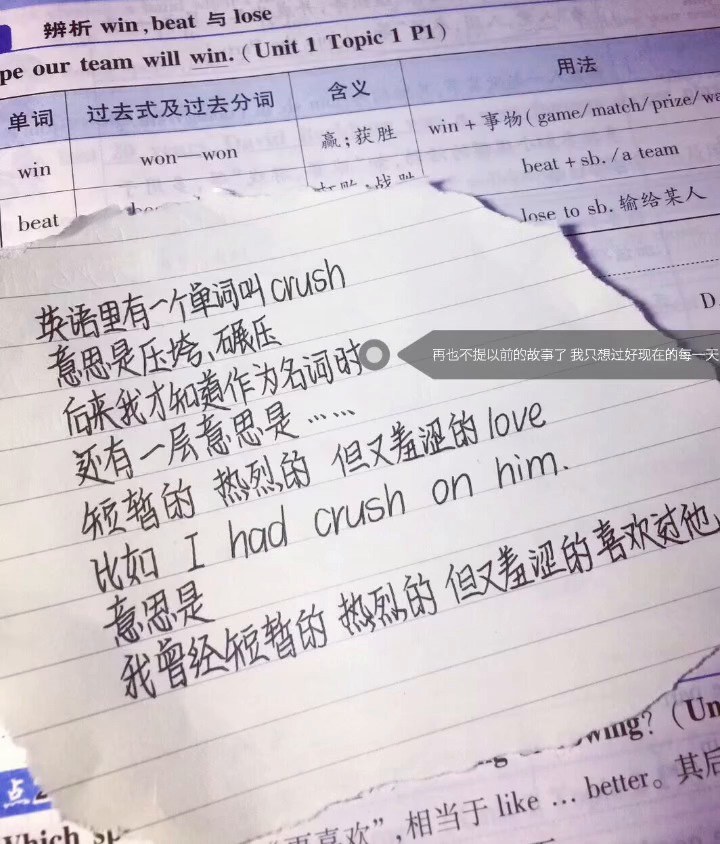 辨析 win,beat 与 lose
pe our team will win. (Unit 1 Topic 1 P1)
单词 过去式及过去分词 含义 用法
win won—won 赢;获胜 win + 事物( game/match/prize/wa
beat 战胜 beat + sb. /a team
lose to sb. 输给某人
D.
英语里有一个单词叫 crush
意思是压垮、碾压
后来我才知道作为名词时
还有一层意思是……
短暂的 热烈的 但又羞涩的 love
比如 I had crush on him.
意思是
我曾经短暂的 热烈的 但又羞涩的喜欢过他、
再也不提以前的故事了 我只想过好现在的每一天
wing? (Un
点2
“更喜欢”,相当于 like … better。其后
Which sp